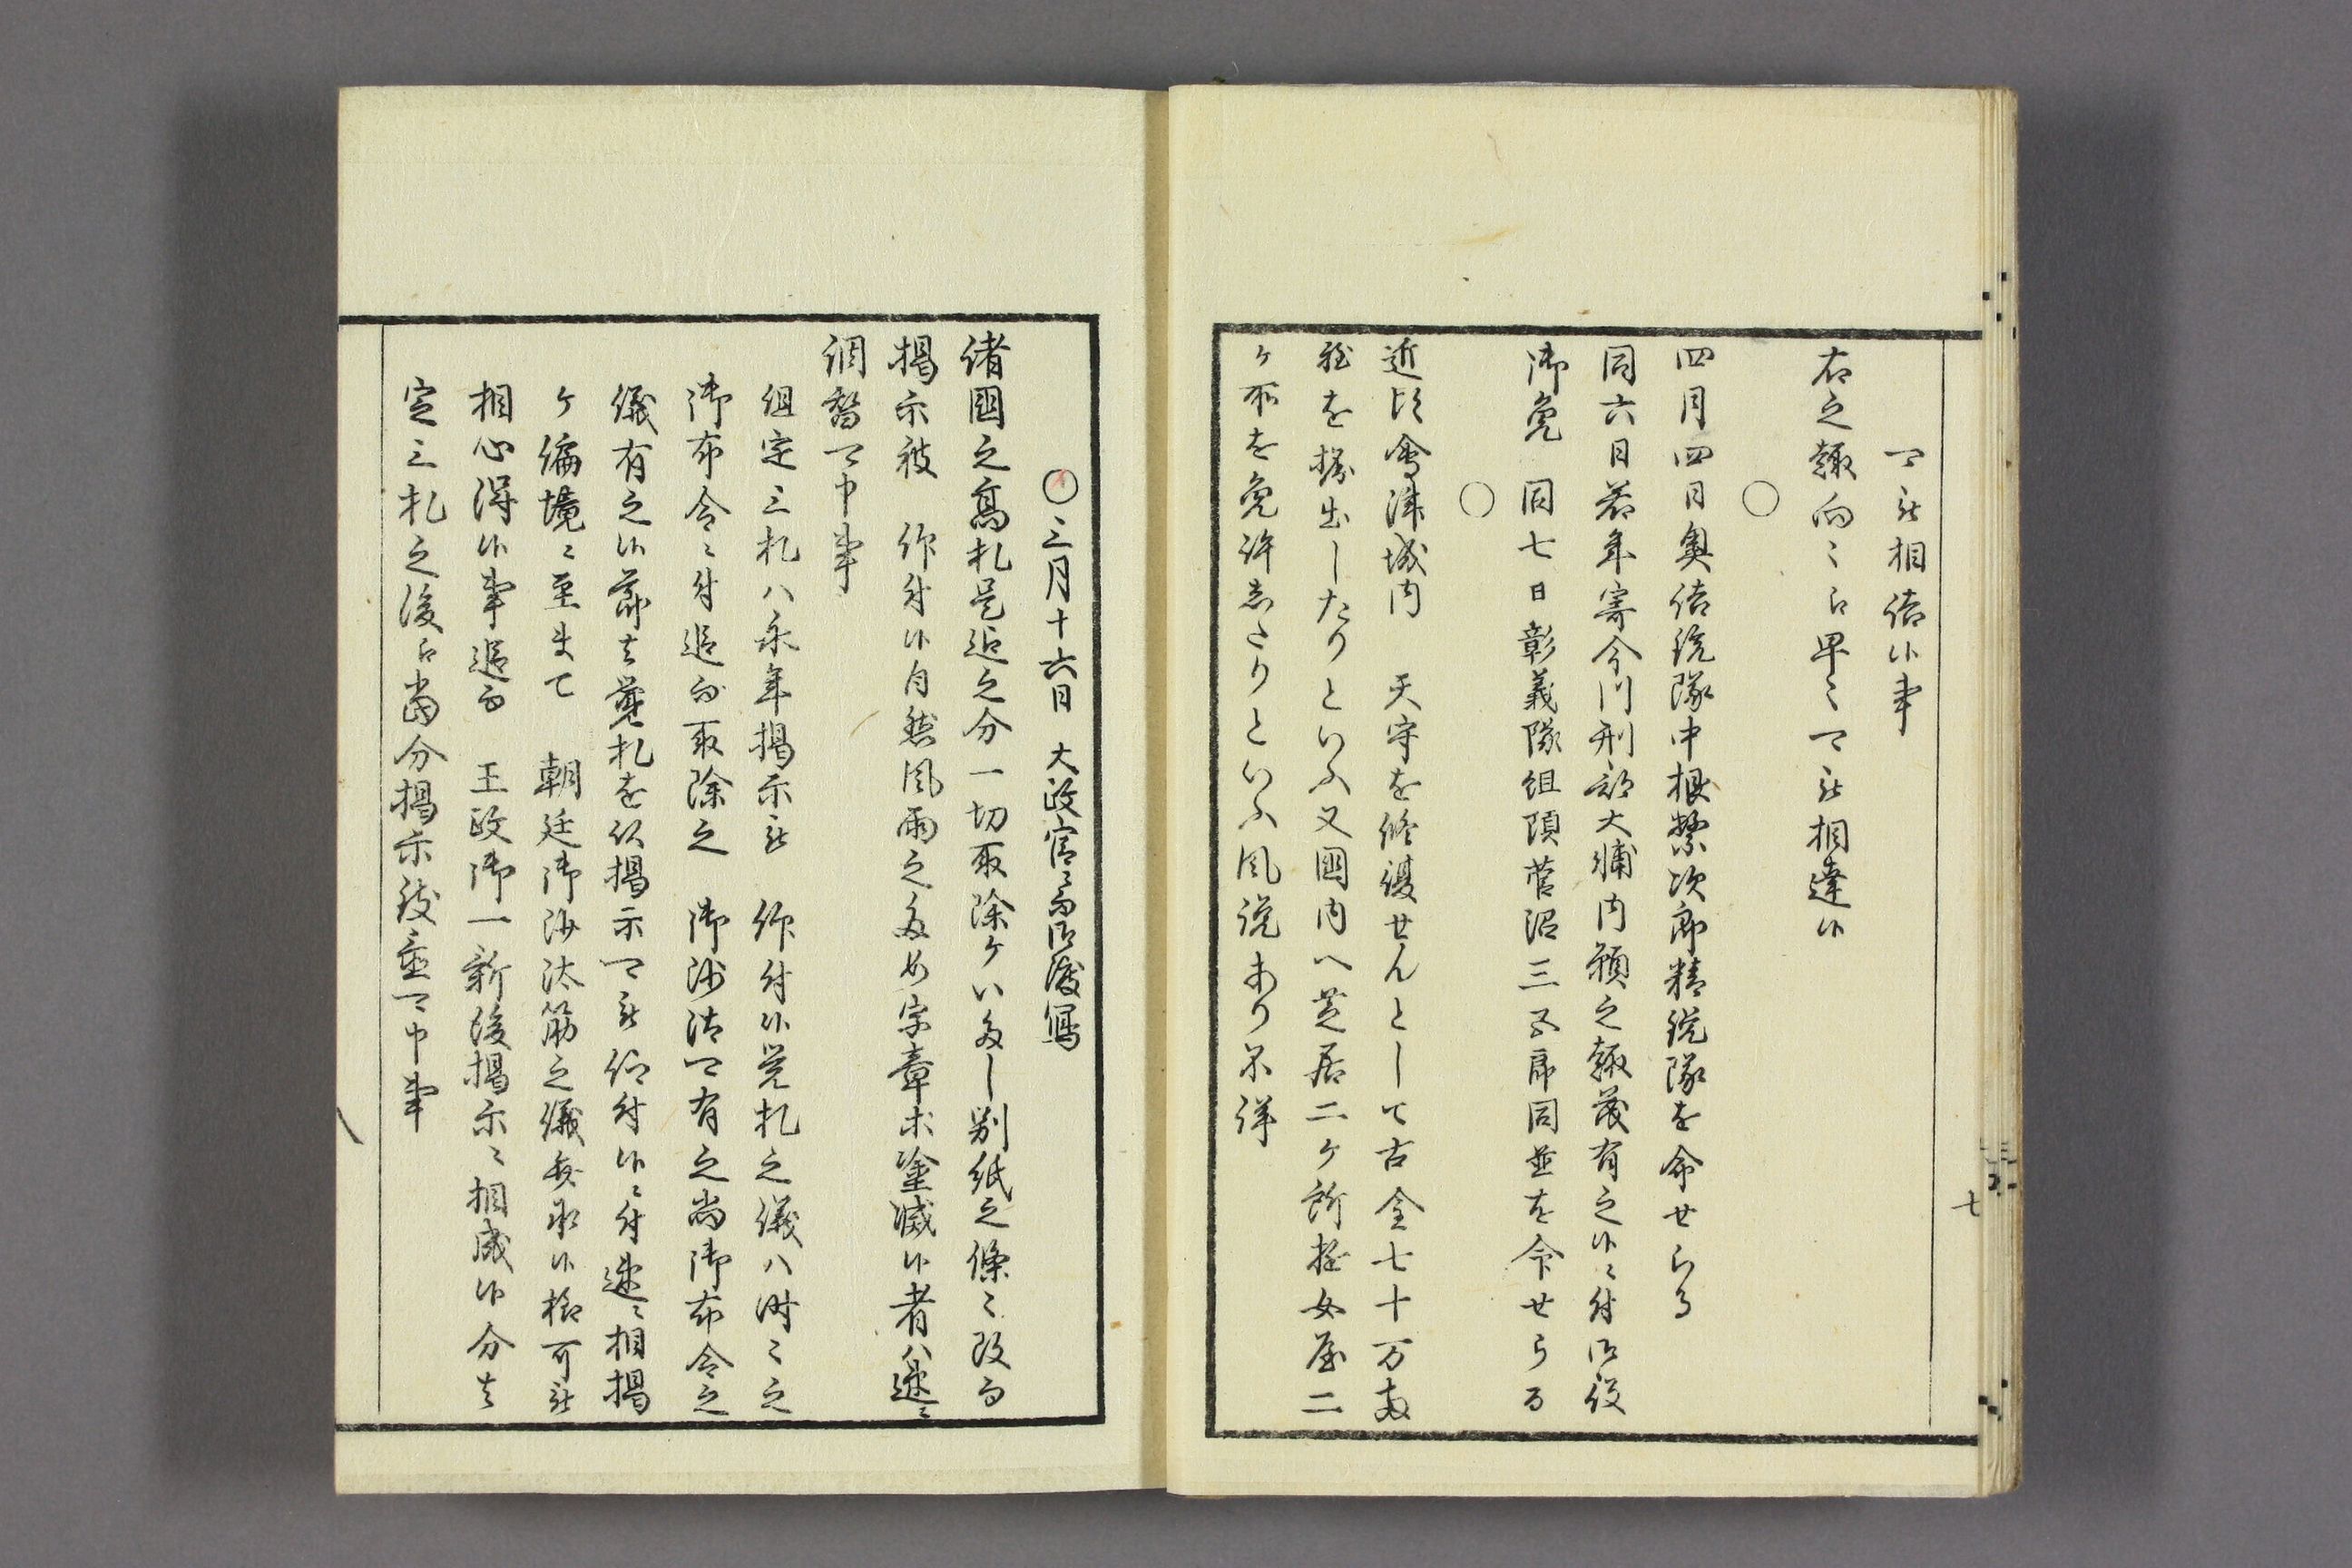 可被相結候事
右之趣向々ゟ早々可被相達候
○
四月四日奥詰銃隊中根繁次郎精鋭隊を命せらる
同六日若年寄今川刑部大輔内願之趣茂有之候ニ付御役
御免 同七日彰義隊組頭菅沼三五郎同並を命せらる
○
近比會津城内 天守を修復せんとして古金七十万両
程を掘出したりといふ又國内へ芝居二ケ所遊女屋二
ケ所を免許したりといふ風説あり不詳
七
○三月十六日 大政官ニ而御渡写
諸國之高札是迄之分一切取除ケいたし別紙之條々改而
掲示被 仰付候自然風雨之為め字章等塗滅候者ハ速ニ
調替可申事
但定三札ハ永年掲示被 仰付候覚札之儀ハ時々之
御布令ニ付追而取除之 御沙汰可有之尚御布令之
儀有之候節者覚札を以掲示可被 仰付候ニ付速ニ相掲
ケ偏境ニ至まて 朝廷御沙汰筋之儀無承候様可被
相心得候事追而 王政御一新後掲示ニ相成候分者
定三札之後ゟ当分掲示致置可申事